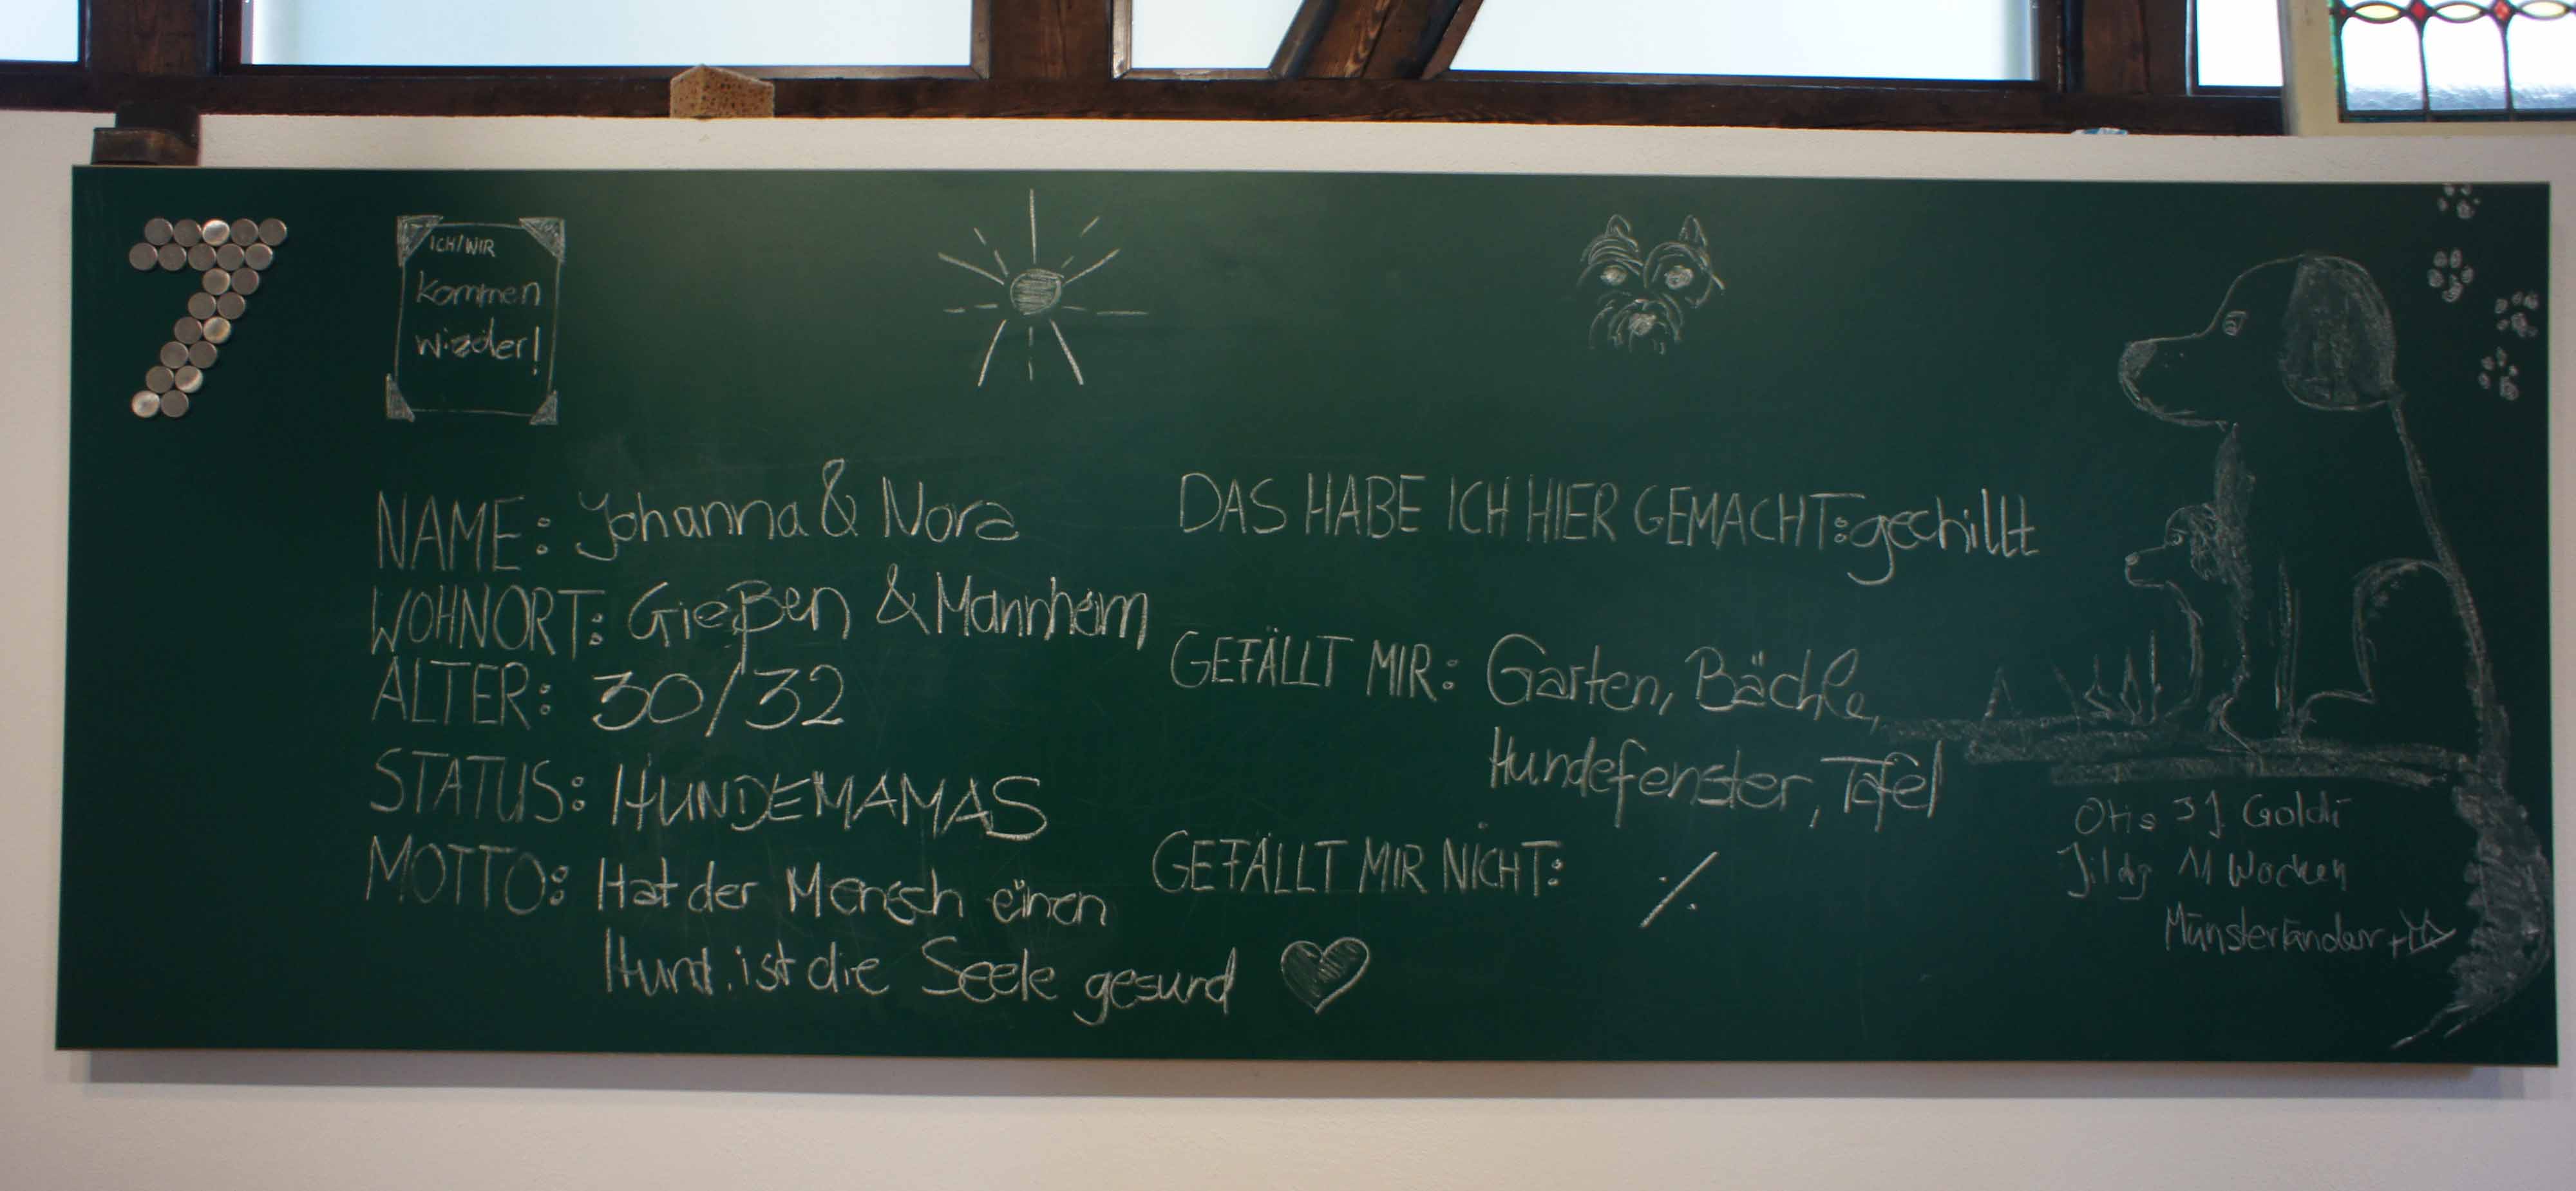 7
ICH/WIR
kommen
wieder!
NAME: Johanna & Nora
WOHNORT: Gießen & Mannheim
ALTER: 30/32
STATUS: HUNDEMAMAS
MOTTO: Hat der Mensch einen
Hund, ist die Seele gesund
DAS HABE ICH HIER GEMACHT: gechillt
GEFÄLLT MIR: Garten, Bächle,
Hundefenster, Tafel
GEFÄLLT MIR NICHT: ⁒
Otis 3 J. Goldi
11 Wochen
Münsterländer +